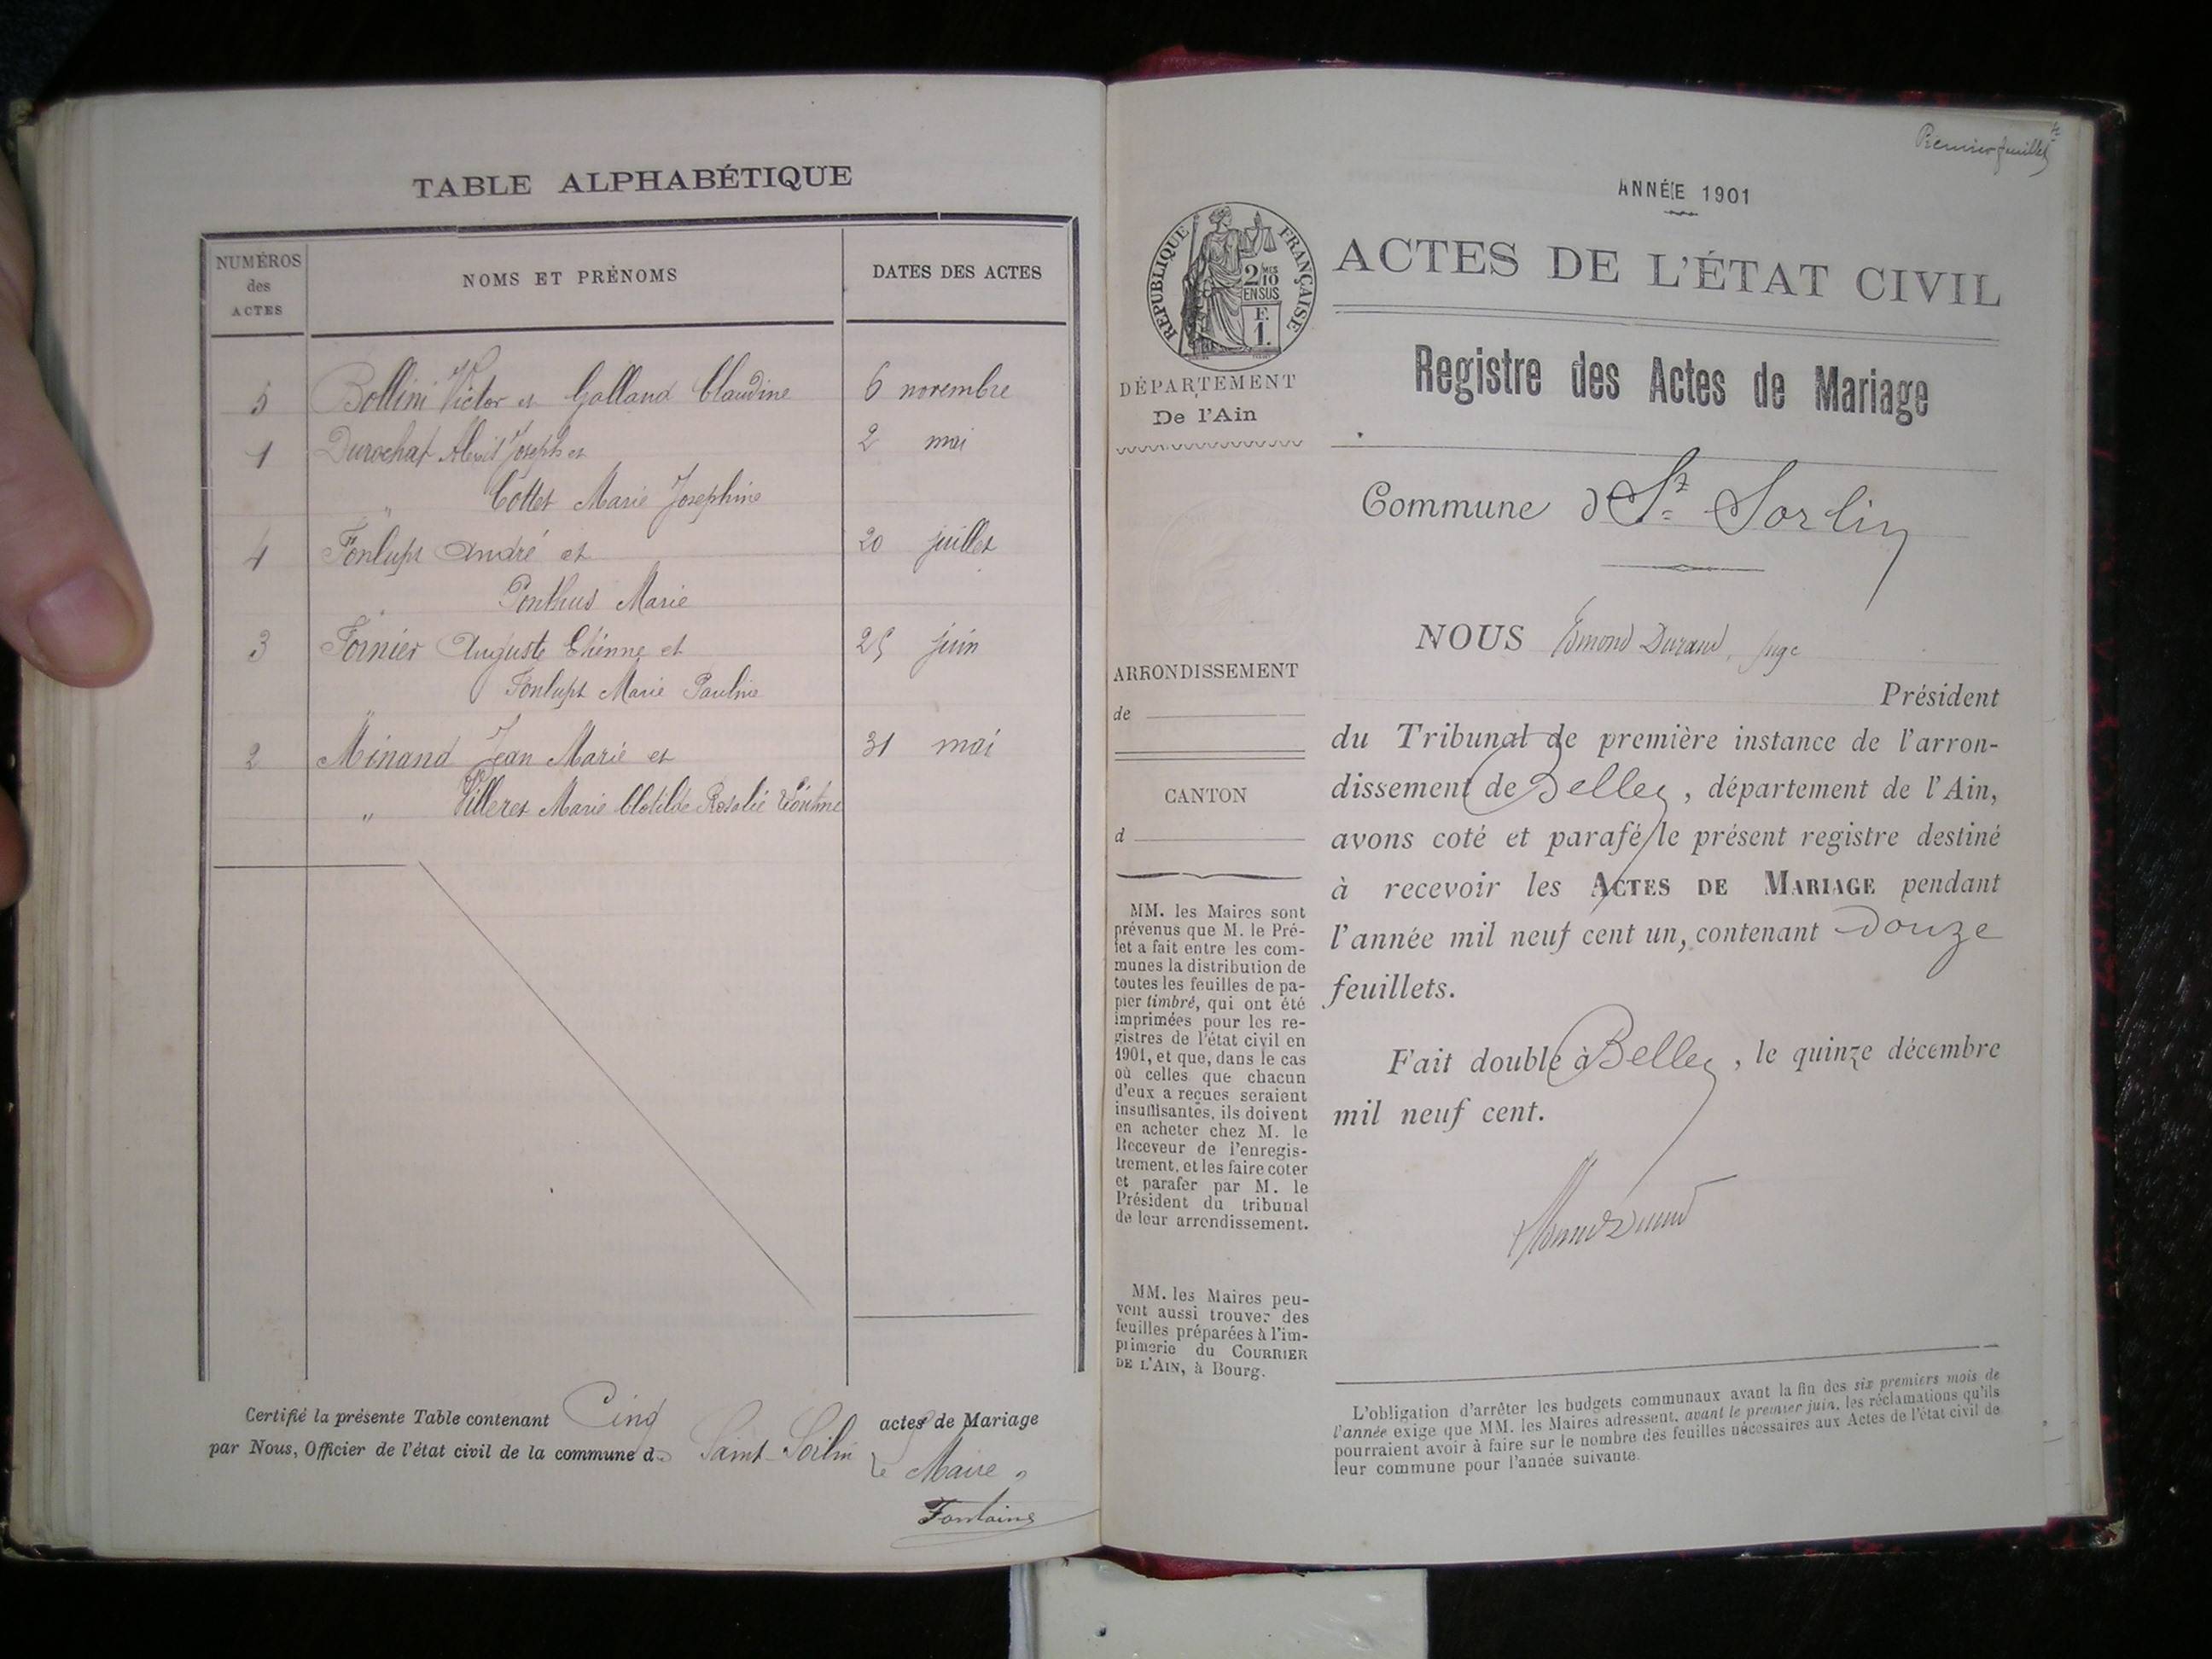 TABLE ALPHABÉTIQUE
NUMÉROS des ACTES
NOMS ET PRÉNOMS
DATES DES ACTES
5 Bollini Victor et Galland Claudine 6 novembre
1 Durochat Alexis Joseph et 2 mai
" Cottet Marie Josephine
4 Fonlupt André et 20 juillet
" Ponthus Marie
3 Fornier Auguste Etienne et 25 juin
" Fonlupt Marie Pauline
2 Minand Jean Marie et 31 mai
" Villeret Marie Clotilde Rosalie
Certifié la présente Table contenant Cinq actes de Mariage
par Nous, Officier de l'état civil de la commune de Saint-Sorlin
Le Maire,
Fontaine
Premier feuillet
ANNÉE 1901
RÉPUBLIQUE FRANÇAISE
2/10 MES
EN SUS
F.
1.
DÉPARTEMENT
De l'Ain
ARRONDISSEMENT
de
CANTON
d
MM. les Maires sont
prévenus que M. le Pré-
fet a fait entre les com-
munes la distribution de
toutes les feuilles de pa-
pier timbré, qui ont été
imprimées pour les re-
gistres de l'état civil en
1901, et que, dans le cas
où celles que chacun
d'eux a reçues seraient
insuffisantes, ils doivent
en acheter chez M. le
Receveur de l'enregis-
trement, et les faire coter
et parafer par M. le
Président du tribunal
de leur arrondissement.
MM. les Maires peu-
vent aussi trouver des
feuilles préparées à l'im-
primerie du COURRIER
DE L'AIN, à Bourg.
ACTES DE L'ÉTAT CIVIL
Registre des Actes de Mariage
Commune d St Sorlin
NOUS Edmond Durand, juge
Président
du Tribunal de première instance de l'arron-
dissement de Belley, département de l'Ain,
avons coté et parafé le présent registre destiné
à recevoir les ACTES DE MARIAGE pendant
l'année mil neuf cent un, contenant Douze
feuillets.
Fait double à Belley, le quinze décembre
mil neuf cent.
L'obligation d'arrêter les budgets communaux avant la fin des six premiers mois de
l'année exige que MM. les Maires adressent, avant le premier juin, les réclamations qu'ils
pourraient avoir à faire sur le nombre des feuilles nécessaires aux Actes de l'état civil de
leur commune pour l'année suivante.